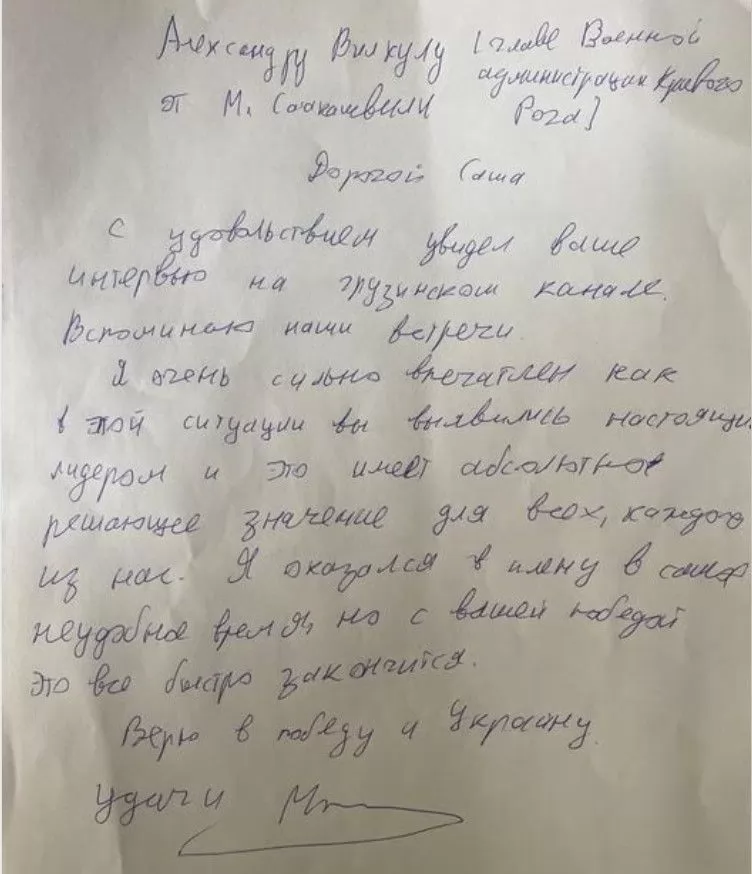 Александру Вилкулу [главе Военной
администрации Кривого
Рога]
от М. Саакашвили
Дорогой Саша
С удовольствием увидел ваше
интервью на грузинском канале.
Вспоминаю наши встречи.
Я очень сильно впечатлен как
в этой ситуации вы выявились настоящим
лидером и это имеет абсолютное
решающее значение для всех, каждого
из нас. Я оказался в плену в самое
неудобное время, но с вашей победой
это все быстро закончится.
Верю в победу и Украину.
Удачи